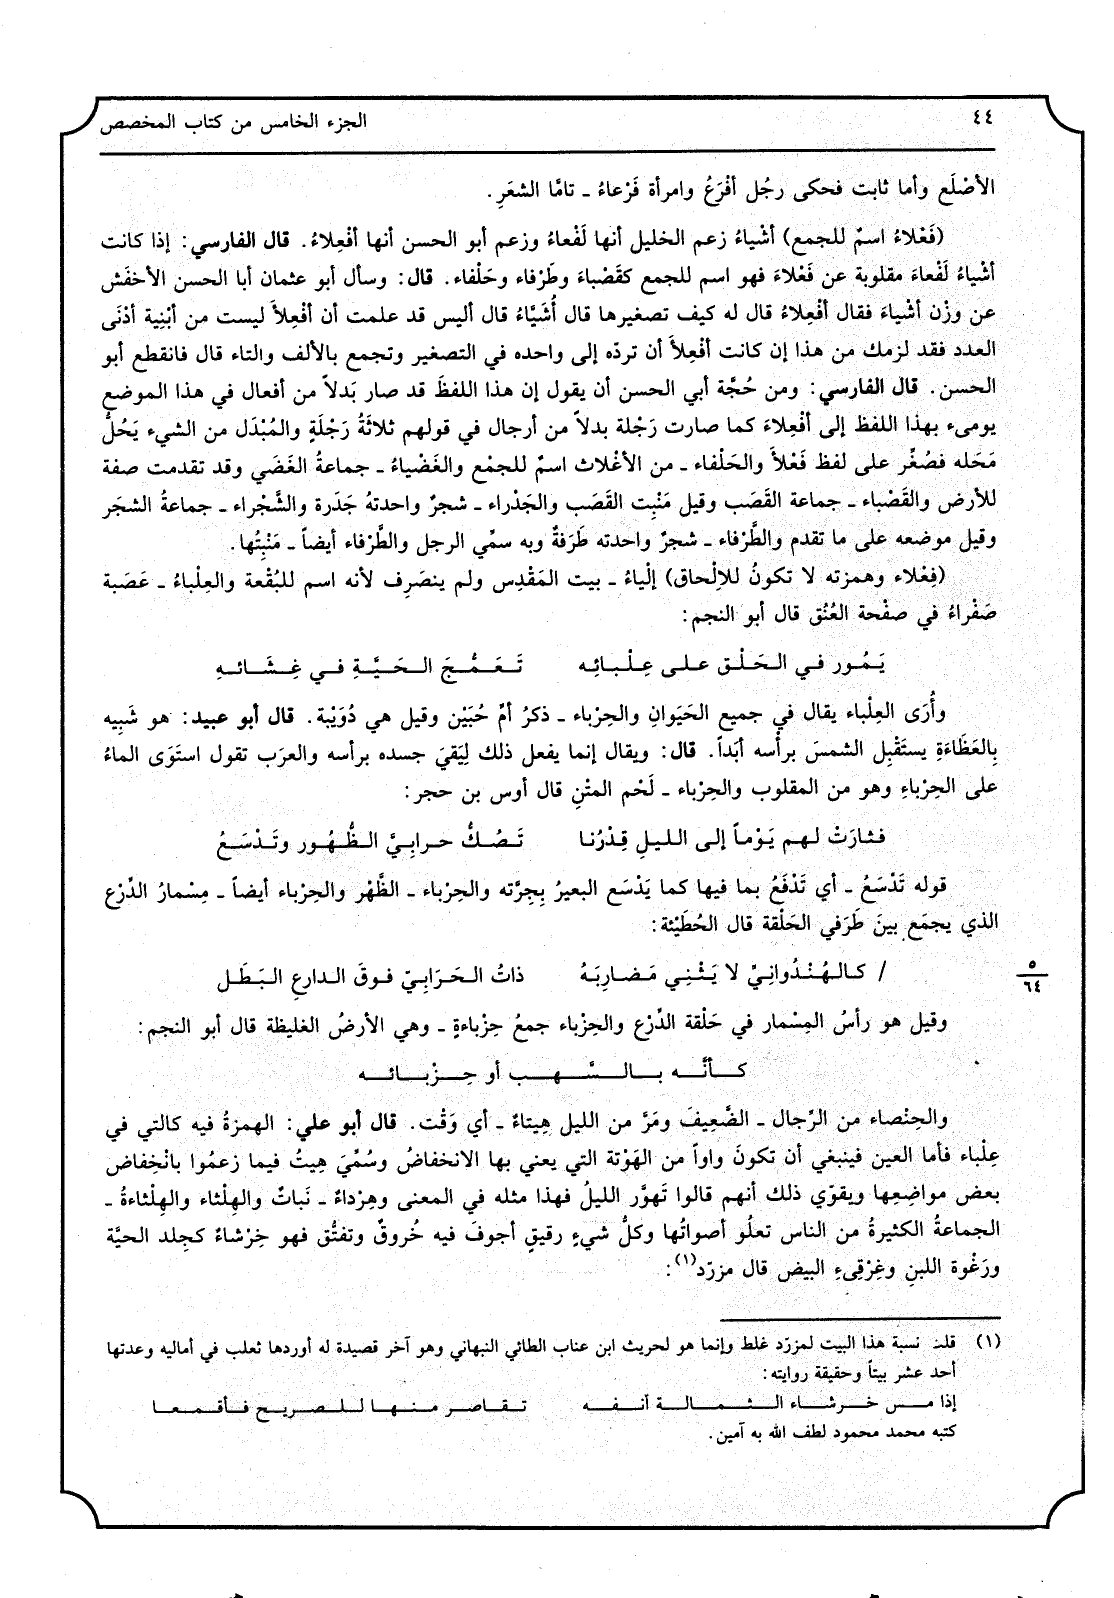 ٤٤
الجزء الخامس من كتاب المخصص
الأصْلَع وأما ثابت فحكى رجُل أفْرَعُ وامرأة فَرْعاءُ ـ تامًّا الشعَرِ.
(فَعْلاءُ اسمٌ للجمع) أشْياءُ زعم الخليل أنها لَفْعاءُ وزعم أبو الحسن أنها أفْعِلاءُ. قال الفارسي: إذا كانت
أشْياءُ لَفْعاءَ مقلوبة عن فَعْلاءَ فهو اسم للجمع كقَصْباءَ وطَرْفاء وحَلْفاء. قال: وسأل أبو عثمان أبا الحسن الأخفَش
عن وزْن أشْياءَ فقال أفْعِلاءُ قال له كيف تصغيرها قال أُشَيَّاءُ قال أليس قد علمت أن أفْعِلاَ ليست من أبْنِية أدْنَى
العدد فقد لزمك من هذا إن كانت أفْعِلاَ أن تردّه إلى واحده في التصغير وتجمع بالألف والتاء قال فانقطع أبو
الحسن. قال الفارسي: ومن حُجَّة أبي الحسن أن يقول إن هذا اللفظَ قد صار بَدلاً من أفعال في هذا الموضع
يومىء بهذا اللفظ إلى أفْعِلاءَ كما صارت رَجْلة بدلاً من أرجال في قولهم ثلاثَةُ رَجْلَةٍ والمُبْدَل من الشيء يَحُلُّ
مَحَله فصُغِّر على لفظ فَعْلاً والحَلْفاء ـ من الأغْلاث اسمٌ للجمْع والغَضْياءُ ـ جماعةُ الغَضَي وقد تقدمت صفة
للأرض والقَصْباء ـ جماعة القَصَب وقيل مَنْبِت القَصَب والجَدْراء ـ شجرٌ واحدتهُ جَدَرة والشَّجْراء ـ جماعةُ الشجَر
وقيل موضعه على ما تقدم والطَّرْفاء ـ شجرٌ واحدته طَرَفةٌ وبه سمِّي الرجل والطَّرْفاء أيضاً ـ مَنْبِتُها.
(فِعْلاء وهمزته لا تكونُ للإلْحاق) إلْياءُ ـ بيت المَقْدِس ولم ينصَرِف لأنه اسم للبُقْعة والعِلْباءُ ـ عَصَبة
صَفْراءُ في صفْحة العُنُق قال أبو النجم:
يَـمُـور فـي الـحَـلْـق عـلـى عِـلْـبـائِـه    تَـعَـمُّـجَ الـحَـيَّـةِ فـي غِـشَـائــهِ
وأُرَى العِلْباء يقال في جميع الحَيَوانِ والحِرْباء ـ ذكرُ أمّ حُبَيْن وقيل هي دُوَيْبة. قال أبو عبيد: هو شَبِيه
بِالعَظَاءَةِ يستَقْبِل الشمسَ برأْسه أبَداً. قال: ويقال إنما يفعل ذلك لِيَقيَ جسده برأسه والعرَب تقول استَوَى الماءُ
على الحِرْباءِ وهو من المقلوب والحِرْباء ـ لَحْم المتْنِ قال أوس بن حجر:
فـثـارَتْ لـهـم يَـوْمـاً إلى الليلِ قِدْرُنـا    تَـصُـكُّ حـرابِـيَّ الـظُّـهُـور وتَـدْسَـعُ
قوله تَدْسَعُ ـ أي تَدْفَعُ بما فيها كما يَدْسَع البعيرُ بِجِرَّته والحِرْباء ـ الظَّهْر والحِرْباء أيضاً ـ مِسْمارُ الدِّرْع
الذي يجمَع بينَ طَرَفي الحَلْقة قال الحُطَيْئة:
/ كـالـهُـنْـدُوانِـيِّ لا يَـثْـنِـي مَـضـارِبَـهُ    ذاتُ الـحَـرَابِـيّ فـوقَ الـدارعِ الـبَـطَـل
٥
٦٤
وقيل هو رأسُ المِسْمار في حَلْقة الدِّرْع والحِزْباء جمعُ حِزْباءةٍ ـ وهي الأرضُ الغليظة قال أبو النجم:
كـــأنَّــه بـــالـــسَّــهـــب أو حِـــزْبـــائـــه
والحِنْصاء من الرِّجال ـ الضَّعِيفَ ومَرَّ من الليل هِيتاءٌ ـ أي وَقْت. قال أبو علي: الهمزةُ فيه كالتي في
عِلْباء فأما العين فينبغي أن تكونَ واواً من الهَوْتة التي يعني بها الانخفاضُ وسُمِّيَ هِيتُ فيما زعمُوا بانْخِفاض
بعض مواضِعِها ويقوّي ذلك أنهم قالوا تَهوَّر الليلُ فهذا مثله في المعنى وهِرْداءٌ ـ نَباتٌ والهِلْثاء والهِلْثاءةُ ـ
الجماعةُ الكثيرةُ من الناس تعلُو أصواتُها وكلُّ شيءٍ رقيقٍ أجوفَ فيه خُروقٌ وتفتُّق فهو خِرْشاءٌ كجِلد الحيَّة
ورَغْوة اللبنِ وغِرْقِىءِ البيض قال مزرّد(١):
(١) قلت نسبة هذا البيت لمزرّد غلط وإنما هو لحريث ابن عناب الطائي النبهاني وهو آخر قصيدة له أوردها ثعلب في أماليه وعدتها
أحد عشر بيتاً وحقيقة روايته:
إذا مــس خــرشــاء الــثــمــالــة أنــفــه    تــقــاصــر مــنــهــا لــلــصريــح فــأقــمــعــا
كتبه محمد محمود لطف الله به آمين.